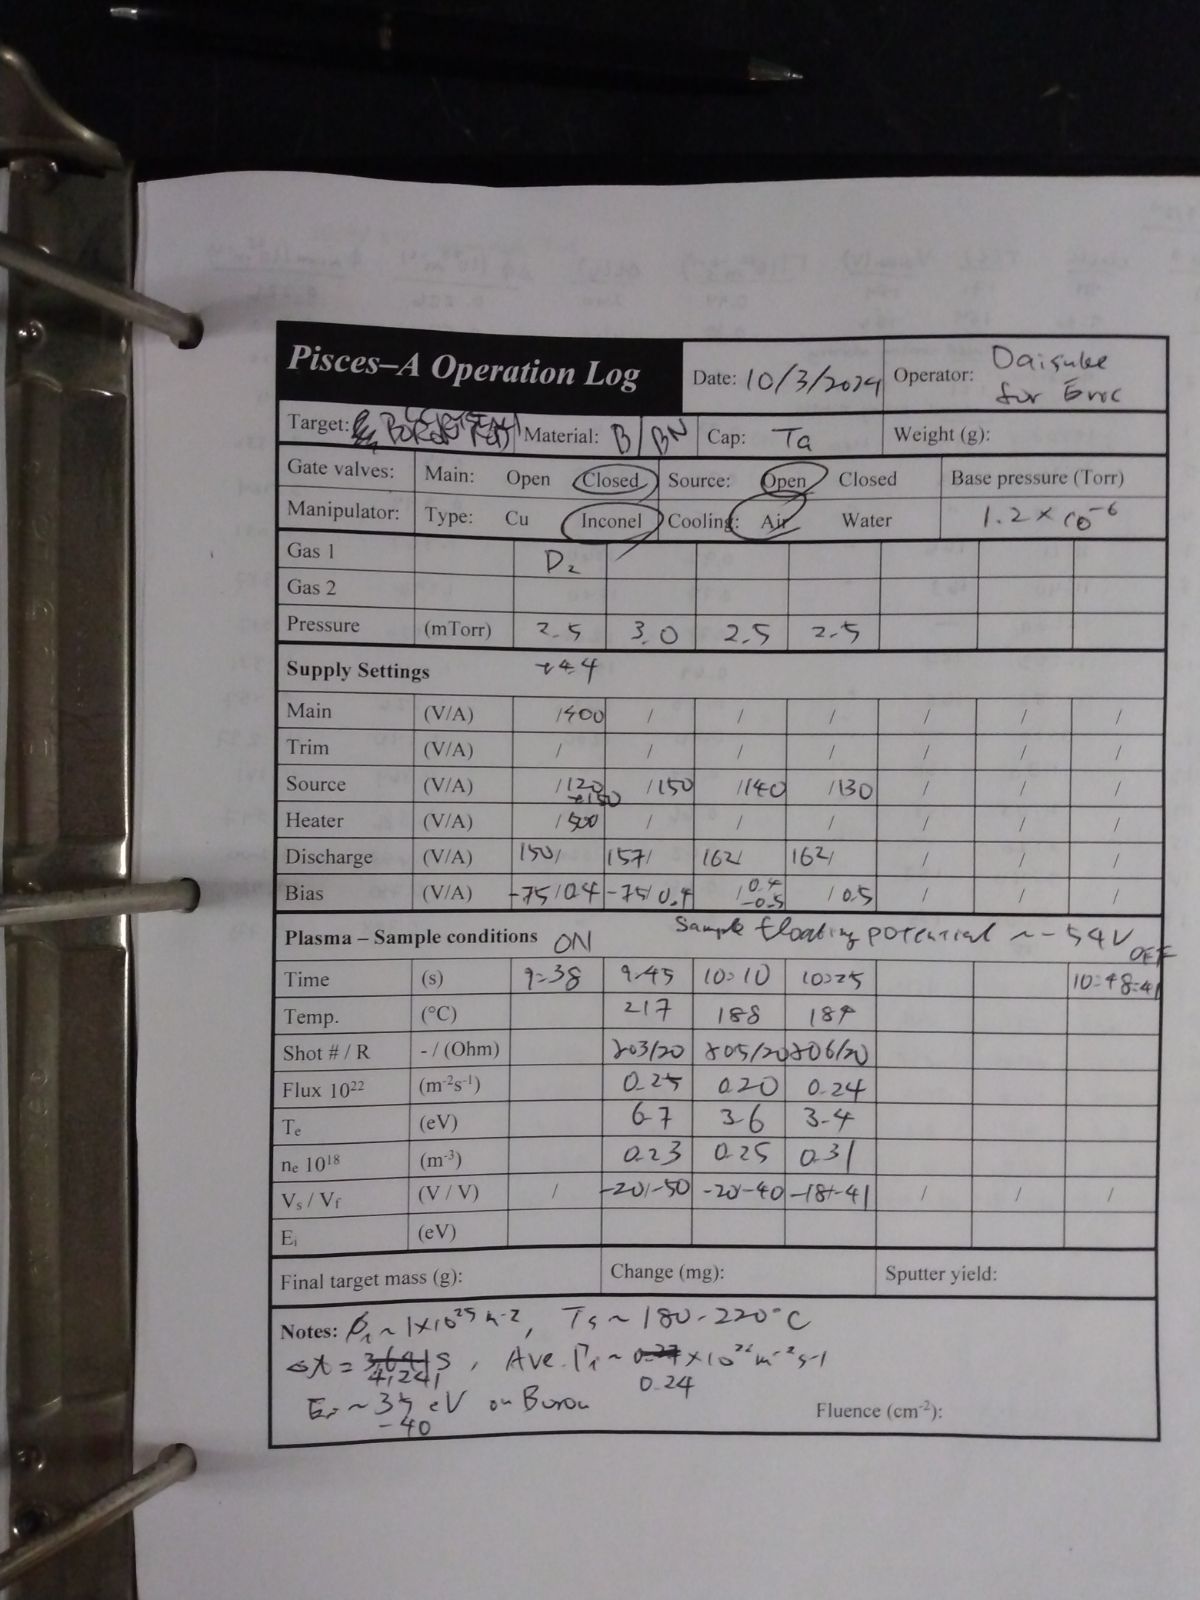 Pisces–A Operation Log
Date: 10/3/2024 Operator: Daisuke for Eric
Target: Material: B/BN Cap: Ta Weight (g):
Gate valves: Main: Open Closed Source: Open Closed Base pressure (Torr)
Manipulator: Type: Cu Inconel Cooling: Air Water 1.2 × 10⁻⁶
Gas 1 D₂
Gas 2
Pressure (mTorr) 2.5 3.0 2.5 2.5
Supply Settings
Main (V/A) /400 / / / / / /
Trim (V/A) / / / / / / /
Source (V/A) /120 →150 /150 /140 /130 / / /
Heater (V/A) /500 / / / / / /
Discharge (V/A) 150/ 157/ 162/ 162/ / / /
Bias (V/A) -75/0.4 -75/0.4 /0.4-0.5 /0.5 / / /
Plasma – Sample conditions ON Sample floating potential ~ -54V OFF
Time (s) 9:38 9:45 10:10 10:25 10:48:41
Temp. (°C) 217 188 184
Shot # / R - / (Ohm) 803/20 805/20 806/20
Flux 10²² (m⁻²s⁻¹) 0.25 0.20 0.24
Tₑ (eV) 6.7 3.6 3.4
nₑ 10¹⁸ (m⁻³) 0.23 0.25 0.31
Vₛ / V_f (V / V) / -20/-50 -20/-40 -18/-41 / / /
Eᵢ (eV)
Final target mass (g): Change (mg): Sputter yield:
Notes: Φᵢ ~ 1×10²⁵ m⁻², Tₛ ~ 180-220°C
Δt = 3,641 s, Ave. Γᵢ ~ 0.27 ×10²² m⁻²s⁻¹
4,241 0.24
Eᵢ ~ 35 eV on Boron
-40
Fluence (cm⁻²):